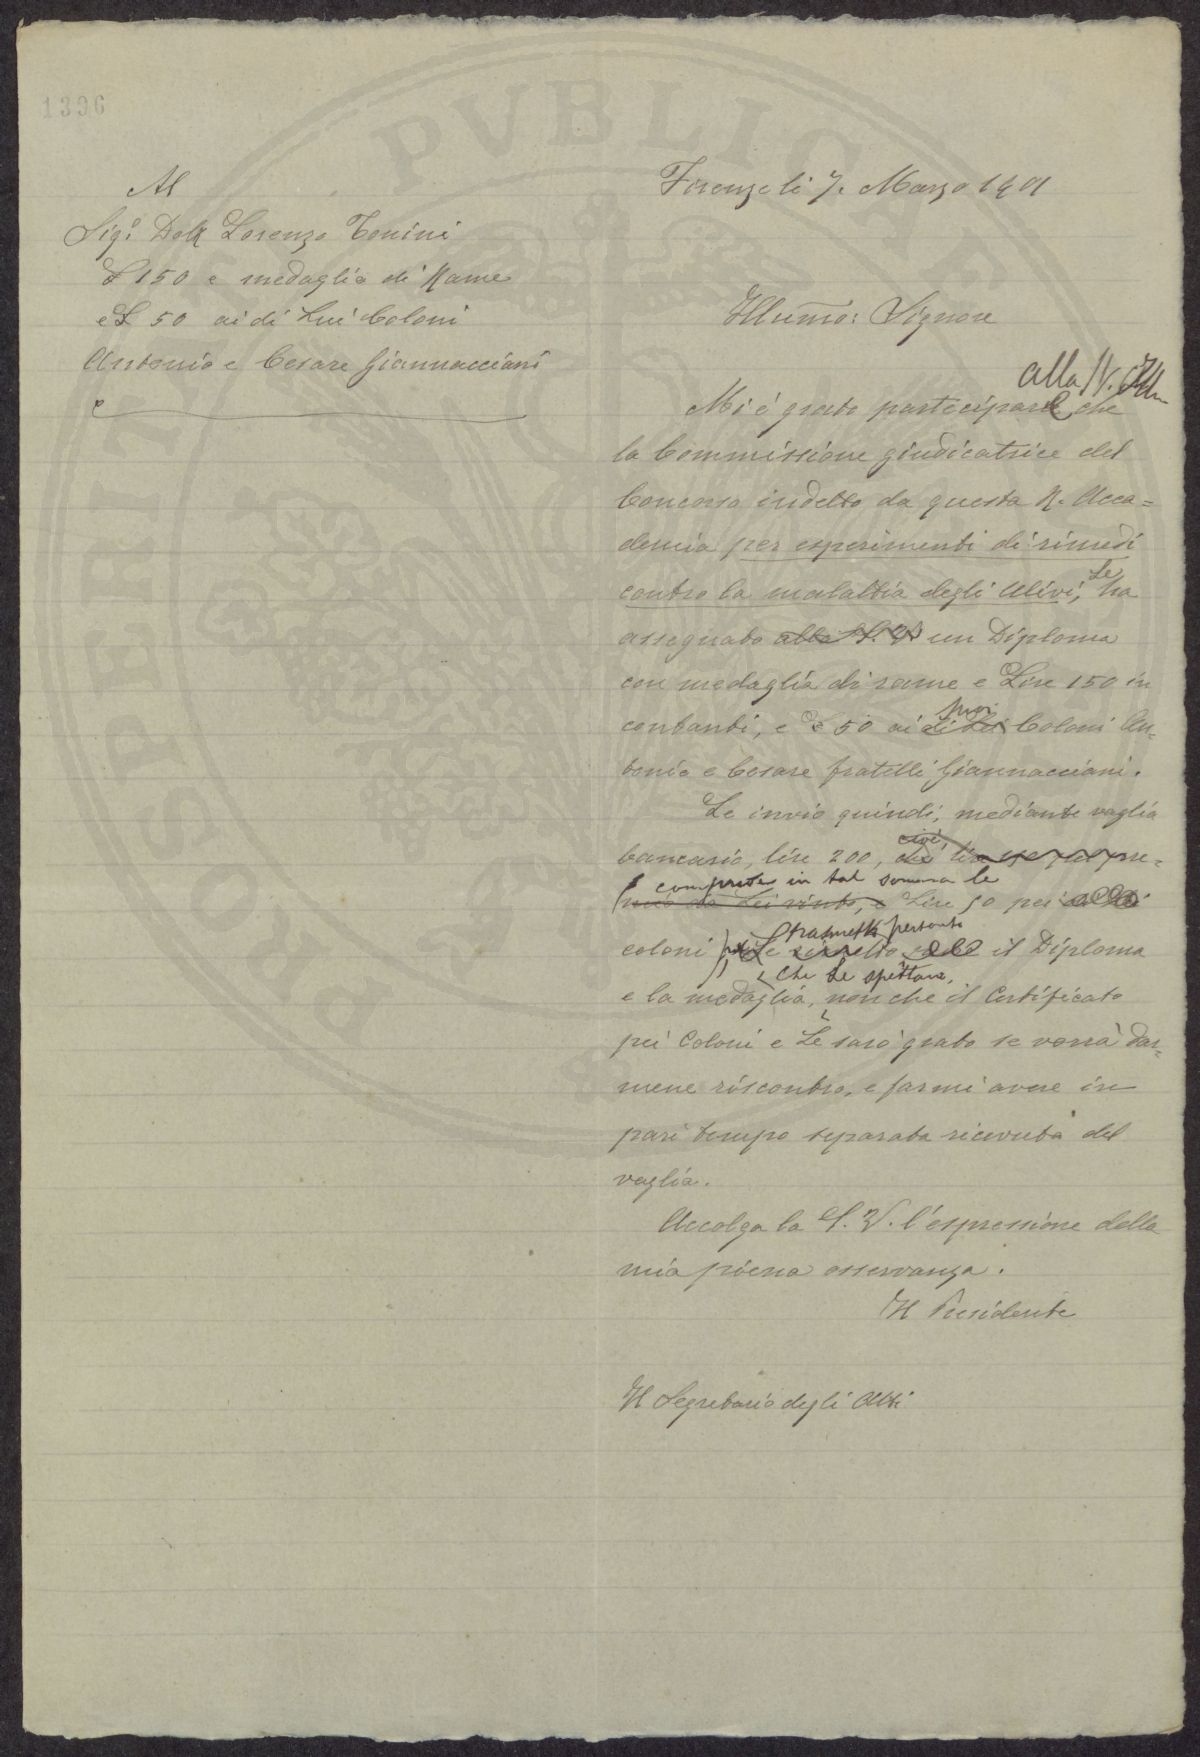 1396
Al
Sigr Dott Lorenzo Tonini
£ 150 e medaglia di Rame
e £ 50 ai di Lui Coloni
Antonio e Cesare Giannacciani
Firenze li 7. Marzo 1901
Illumo: Signore
alla S. V. Ill
Mi è grato partecipare che
la Commissione giudicatrice del
Concorso indetto da questa R. Acca=
demia per esperimenti di rimedi
contro la malattia degli Ulivi, Le ha
assegnato alla S. V. un Diploma
con medaglia di rame e Lire 150 in
contanti, e £ 50 ai di Lei suoi Coloni An=
tonio e Cesare fratelli Giannacciani.
Le invio quindi, mediante vaglia
bancario, lire 200,
comprese in tal somma le
Lire 50 pei
coloni Le trasmetto pertanto il Diploma
che Le spettano,
e la medaglia, non che il Certificato
pei Coloni e Le sarò grato se vorrà dar=
mene riscontro, e farmi avere in
pari tempo separata ricevuta del
vaglia.
Accolga la S. V. l'espressione della
mia piena osservanza.
Il Presidente
Il Segretario degli Atti